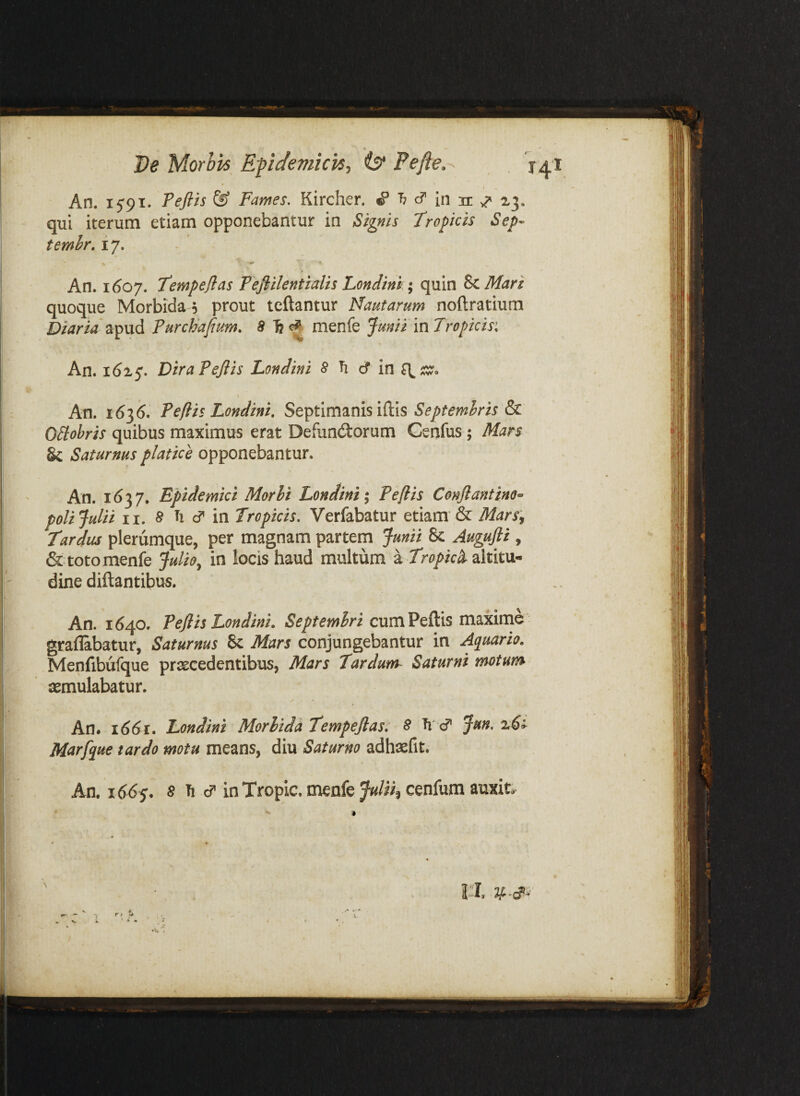 De Morbis Epidemicis, & Peſte. 141
An. 1591. Peſtis & Fames. Kircher. ☍ ♄ ♂ in ♊ ♐ 23.
qui iterum etiam opponebantur in Signis Tropicis Sep-
tembr. 17.
An. 1607. Tempeſtas Peſtilentialis Londini; quin & Mari
quoque Morbida; prout teſtantur Nautarum noſtratium
Diaria apud Purchaſium. ☍ ♄ ♂ menſe Junii in Tropicis.
An. 1625. Dira Peſtis Londini ☍ ♄ ♂ in ♌ ♒.
An. 1636. Peſtis Londini. Septimanis iſtis Septembris &
Octobris quibus maximus erat Defunctorum Cenſus; Mars
& Saturnus platicè opponebantur.
An. 1637. Epidemici Morbi Londini; Peſtis Conſtantino-
poli Julii 11. ☍ ♄ ♂ in Tropicis. Verſabatur etiam & Mars,
Tardus plerúmque, per magnam partem Junii & Auguſti,
& toto menſe Julio, in locis haud multùm à Tropicâ altitu-
dine diſtantibus.
An. 1640. Peſtis Londini. Septembri cum Peſtis maximè
graſſabatur, Saturnus & Mars conjungebantur in Aquario.
Menſibúſque præcedentibus, Mars Tardum Saturni motum
æmulabatur.
An. 1661. Londini Morbida Tempeſtas. ☍ ♄ ♂ Jun. 26.
Marſque tardo motu means, diu Saturno adhæſit.
An. 1665. ☍ ♄ ♂ in Tropic. menſe Julii, cenſum auxit.
II. ♃ ♂